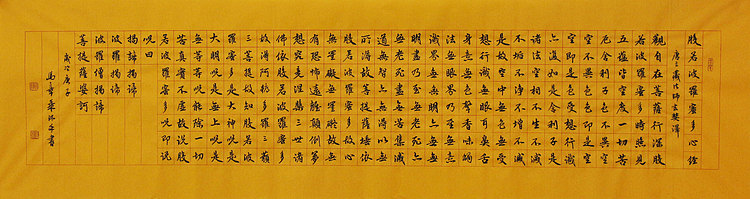 般若波羅蜜多心經
唐三藏法師玄奘譯
觀自在菩薩行深般
若波羅蜜多時照見
五蘊皆空度一切苦
厄舍利子色不異空
空不異色色即是空
空即是色受想行識
亦復如是舍利子是
諸法空相不生不滅
不垢不淨不增不減
是故空中無色無受
想行識無眼耳鼻舌
身意無色聲香味觸
法無眼界乃至無意
識界無無明亦無無
明盡乃至無老死亦
無老死盡無苦集滅
道無智亦無得以無
所得故菩提薩埵依
般若波羅蜜多故心
無罣礙無罣礙故無
有恐怖遠離顛倒夢
想究竟涅槃三世諸
佛依般若波羅蜜多
故得阿耨多羅三藐
三菩提故知般若波
羅蜜多是大神咒是
大明咒是無上咒是
無等等咒能除一切
苦真實不虛故說般
若波羅蜜多咒即說
咒曰
揭諦揭諦
波羅揭諦
波羅僧揭諦
菩提薩婆訶
歲次庚子
沐手書